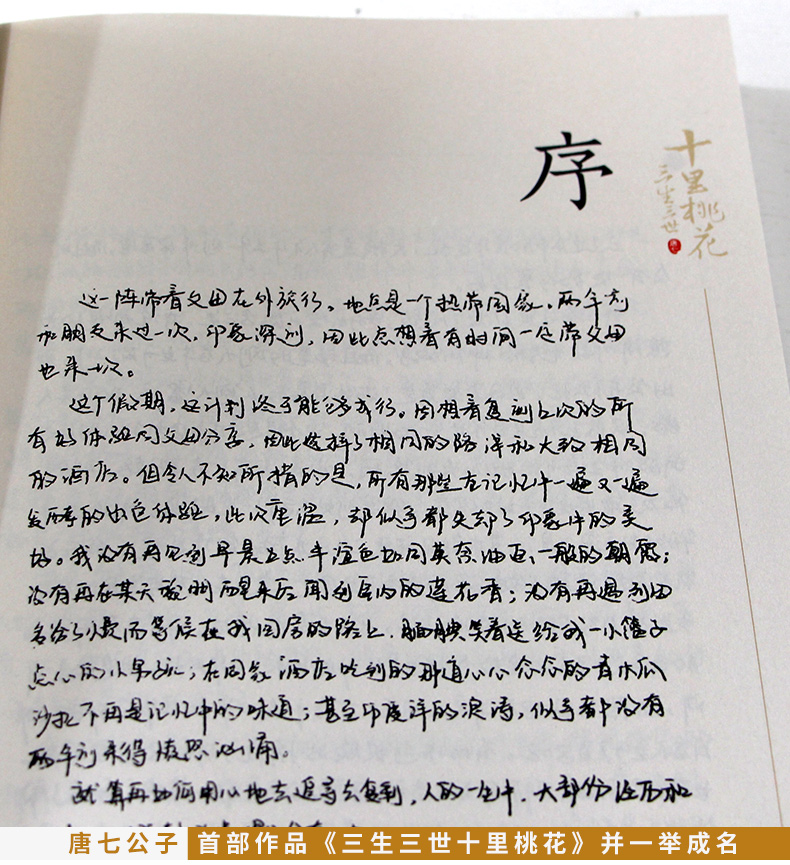 序
十里桃花
三生三世
这一阵带着父母在外旅行。地点是一个热带国家。两年前
和朋友来过一次,印象深刻,因此总想着有时间一定带父母
也来一次。
这个假期,这计划终于能够成行。因想着复刻上次的所
有好体验同父母分享,因此选择了相同的路线和大致相同
的酒店。但令人不知所措的是,所有那些在记忆中一遍又一遍
发酵的出色体验,此次重温,却似乎都失却了印象中的美
好。我没有再见到早晨五点半浓色如同莫奈油画一般的朝霞;
没有再在某天夜晚醒来后闻到房内的莲花香;没有再遇到因
为给了小费而等候在我回房的路上,腼腆笑着送给我一小袋子
点心的小男孩;在同家酒店吃到的那道心心念念的青木瓜
沙拉不再是记忆中的味道;甚至印度洋的浪涛,似乎都没有
两年前来得汹涌。
就算再如何用心地去追寻去复刻,人的一生中,大部份
唐七公子 首部作品《三生三世十里桃花》并一举成名